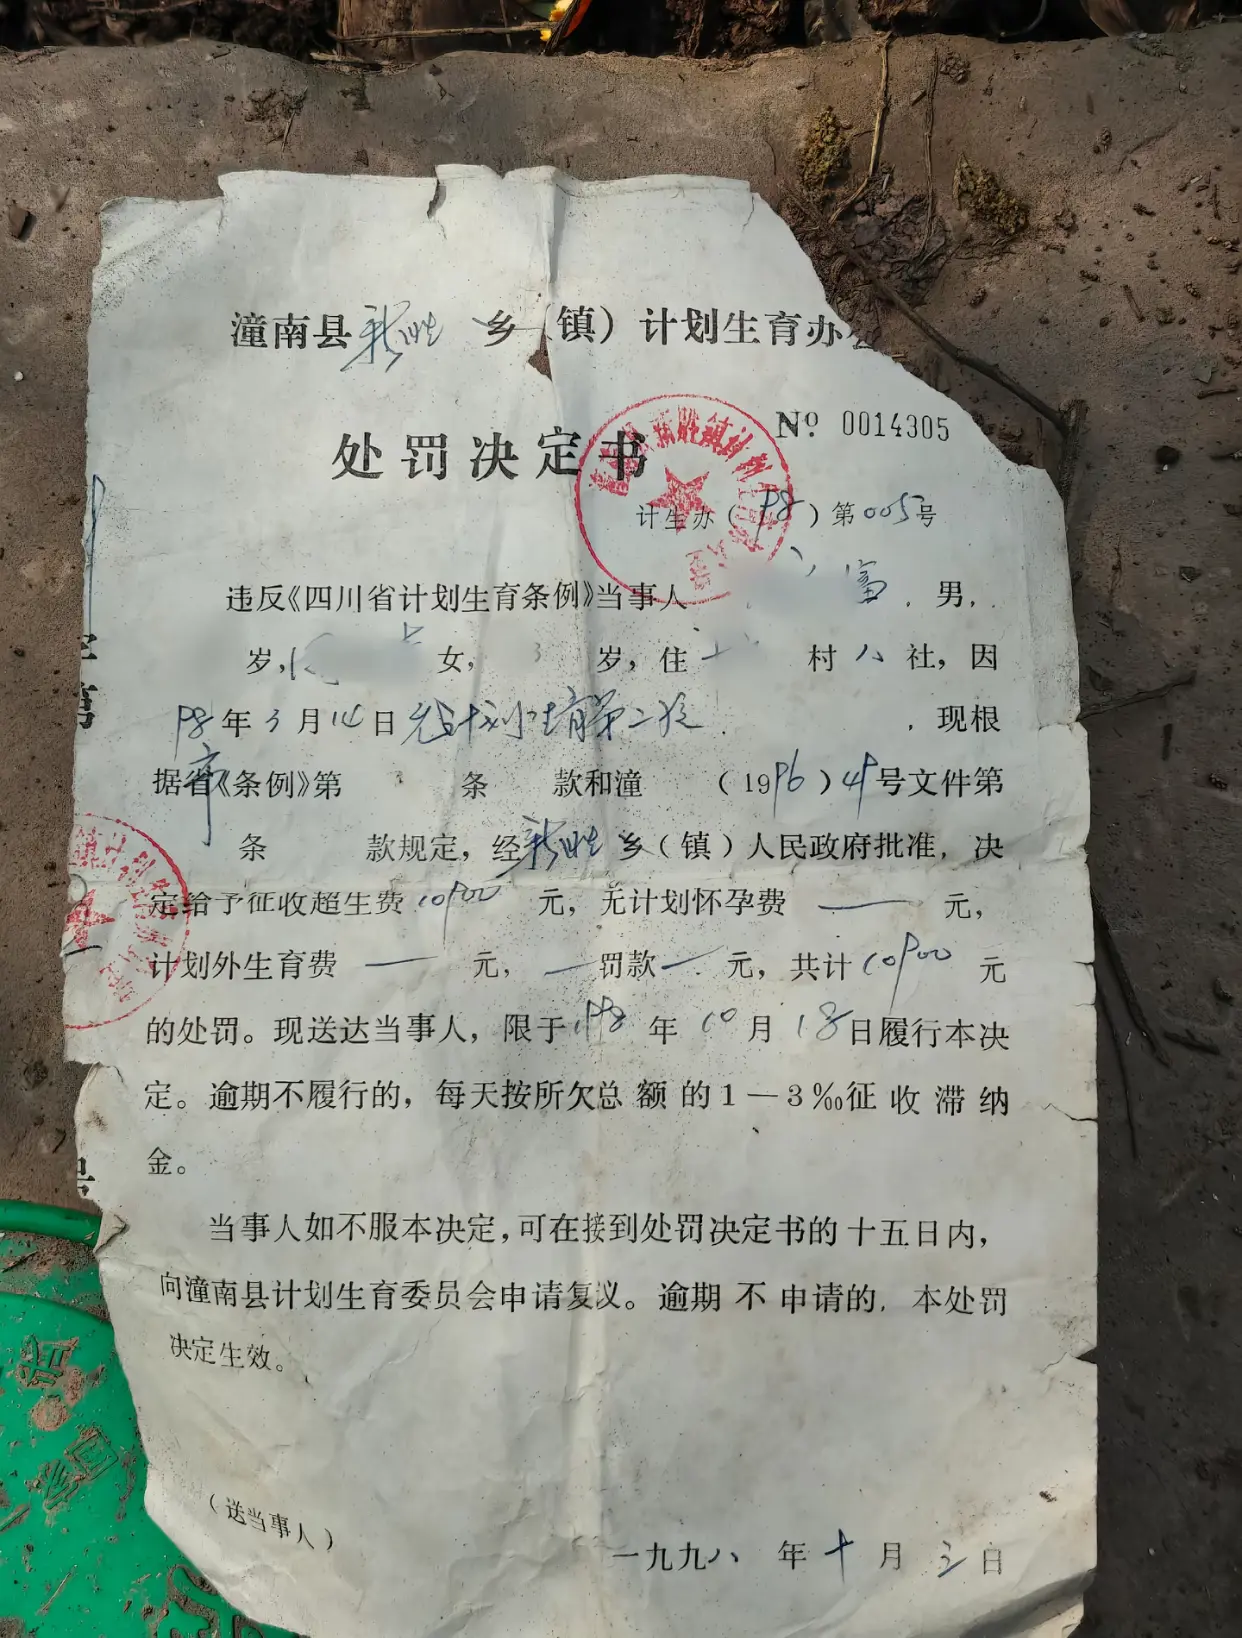 潼南县新胜乡（镇）计划生育办公
处罚决定书
№ 0014305
计生办（98）第005号
违反《四川省计划生育条例》当事人 富，男，
岁， 女， 岁，住 村八社，因
98年3月14日无计划生育第二孩，现根
据省《条例》第 条 款和潼 （1996）49号文件第
市
条 款规定，经新胜乡（镇）人民政府批准，决
定给予征收超生费10900元，无计划怀孕费——元，
计划外生育费——元，—罚款—元，共计10900元
的处罚。现送达当事人，限于1998年10月18日履行本决
定。逾期不履行的，每天按所欠总额的1—3‰征收滞纳
金。
当事人如不服本决定，可在接到处罚决定书的十五日内，
向潼南县计划生育委员会申请复议。逾期不申请的，本处罚
决定生效。
（送当事人）
一九九八年十月三日